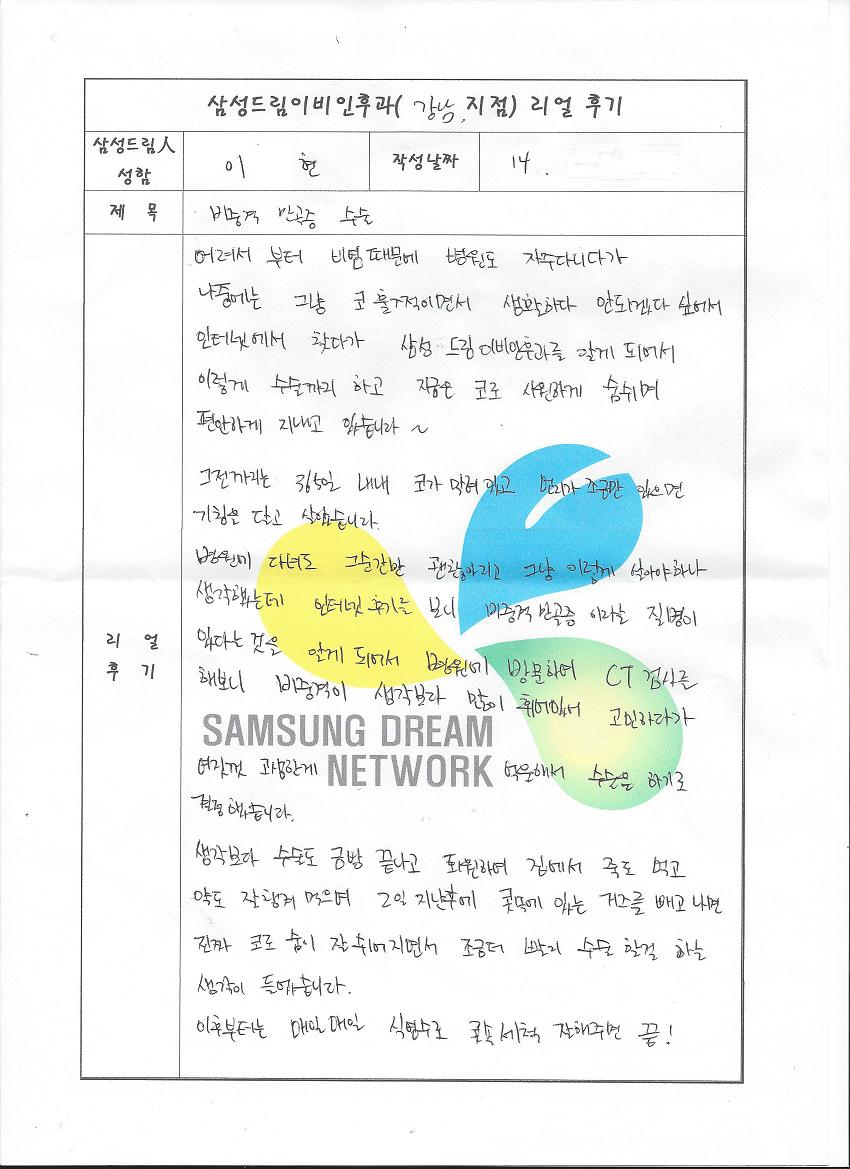 삼성드림이비인후과( 강남, 지점) 리얼 후기
삼성드림人 성함
이 현
작성날짜
14 .
제 목
비중격 만곡증 수술
리 얼 후 기
어려서 부터 비염때문에 병원도 자주다니다가
나중에는 그냥 코 훌쩍이면서 생활하다 안되겠다 싶어서
인터넷에서 찾다가 삼성 드림이비인후과를 알게 되어서
이렇게 수술까지 하고 지금은 코로 시원하게 숨쉬며
편안하게 지내고 있습니다 ~
그전까지는 365일 내내 코가 막혀 있고 먼지가 조금만 있으면
기침을 달고 살았습니다.
병원에 다녀도 그순간만 괜찮아지고 그냥 이렇게 살아야하나
생각했는데 인터넷 후기를 보니 비중격 만곡증 이라는 질병이
있다는 것을 알게 되어서 병원에 방문하여 CT 검사를
해보니 비중격이 생각보다 많이 휘어있어 고민하다가
SAMSUNG DREAM
NETWORK
여짓껏 고생한게 억울해서 수술을 하기로
결정 했습니다.
생각보다 수술도 금방 끝나고 퇴원하여 집에서 죽도 먹고
약도 잘챙겨 먹으며 2일 지난후에 콧속에 있는 거즈를 빼고 나면
진짜 코로 숨이 잘 쉬어지면서 조금더 빨리 수술 할걸 하는
생각이 들었습니다.
이후부터는 매일매일 식염수로 콧속세척 잘해주면 끝!